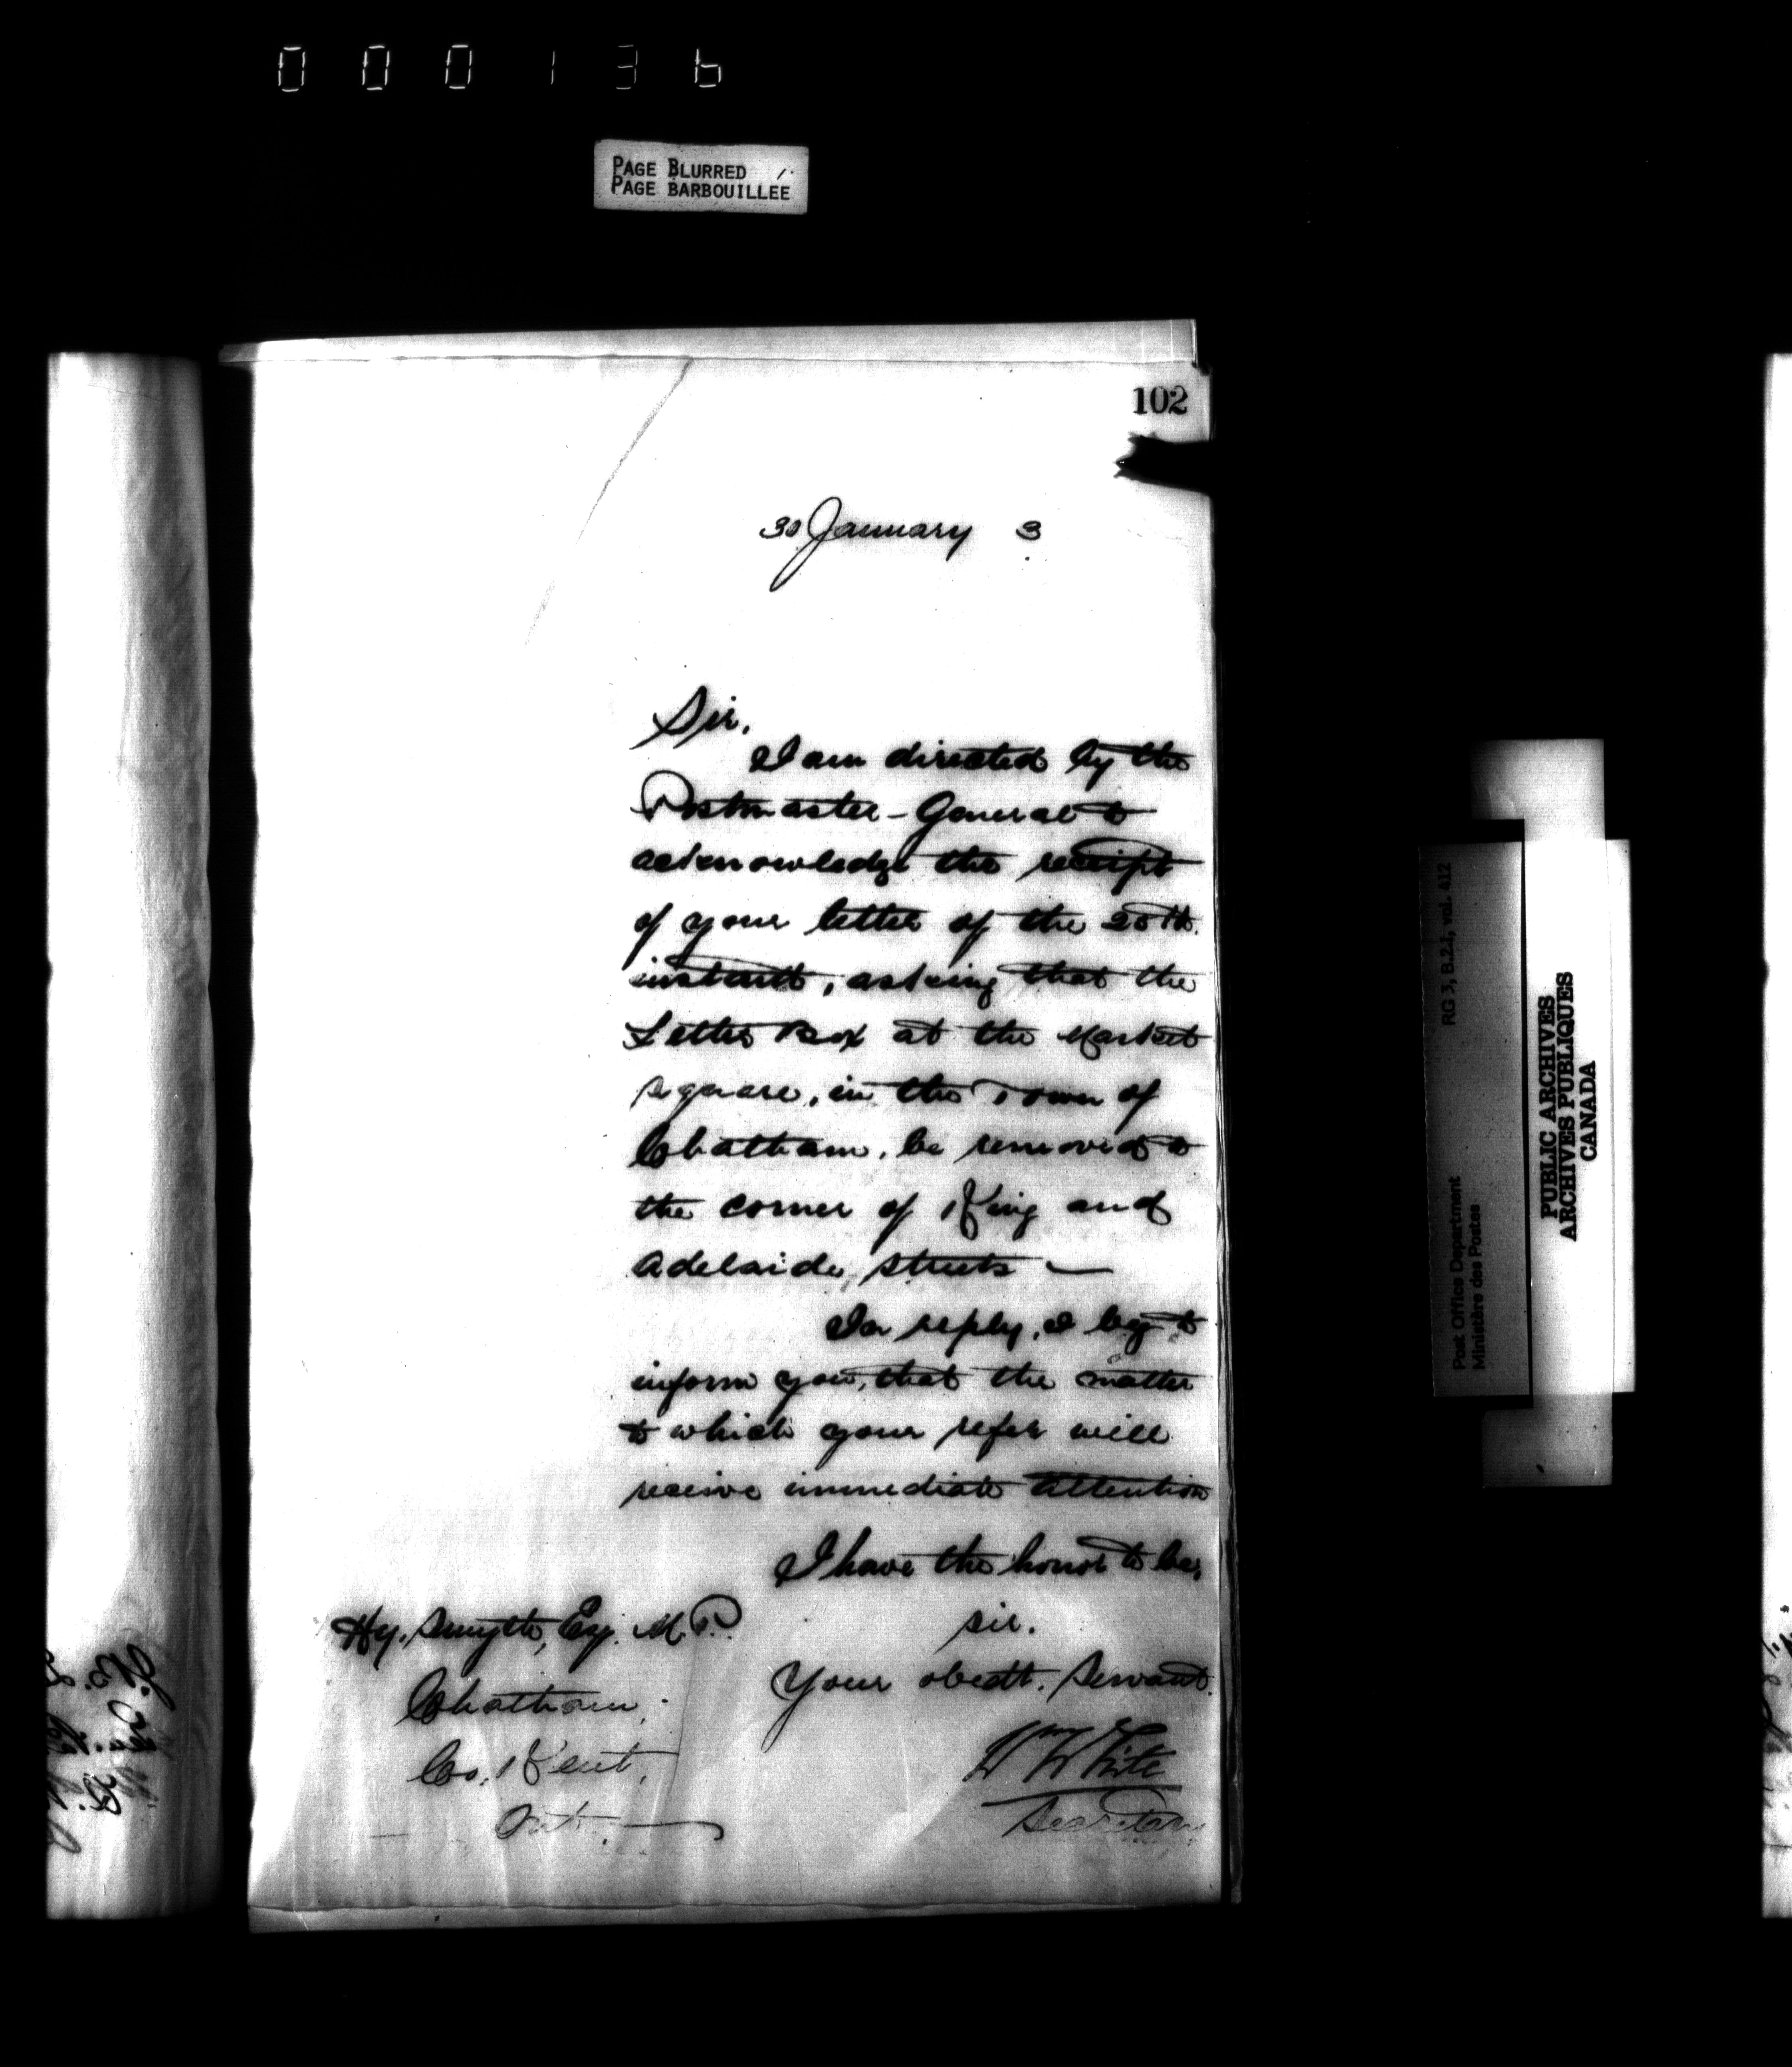 000136
PAGE BLURRED
PAGE BARBOUILLÉE
102
30 January 3
Sir,
I am directed by the
Postmaster-General to
acknowledge the receipt
of your letter of the 20th.
instant, asking that the
Letter Box at the Market
square, in the Town of
Chatham, be removed to
the corner of King and
Adelaide streets —
In reply, I beg to
inform you, that the matter
to which your refer will
receive immediate attention
I have the honor to be,
sir.
Your obedt. Servant.
Wm White
Secretary
Hy. Smyth, Esq. M.P.
Chatham,
Co. Kent,
Ont.
RG 3, B.2.1, vol. 412
Post Office Department
Ministère des Postes
PUBLIC ARCHIVES
ARCHIVES PUBLIQUES
CANADA